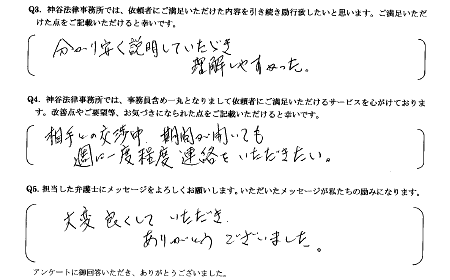 Q3. 神谷法律事務所では、依頼者にご満足いただけた内容を引き続き励行致したいと思います。ご満足いただ
けた点をご記載いただけると幸いです。
分かり安く説明していただき
理解しやすかった。
Q4. 神谷法律事務所では、事務員含め一丸となりまして依頼者にご満足いただけるサービスを心がけておりま
す。改善点やご要望等、お気づきになられた点をご記載いただけると幸いです。
相手との交渉中、期間が開いても
週に一度程度連絡をいただきたい。
Q5. 担当した弁護士にメッセージをよろしくお願いします。いただいたメッセージが私たちの励みになります。
大変良くしていただき、
ありがとうございました。
アンケートに御回答いただき、ありがとうございました。